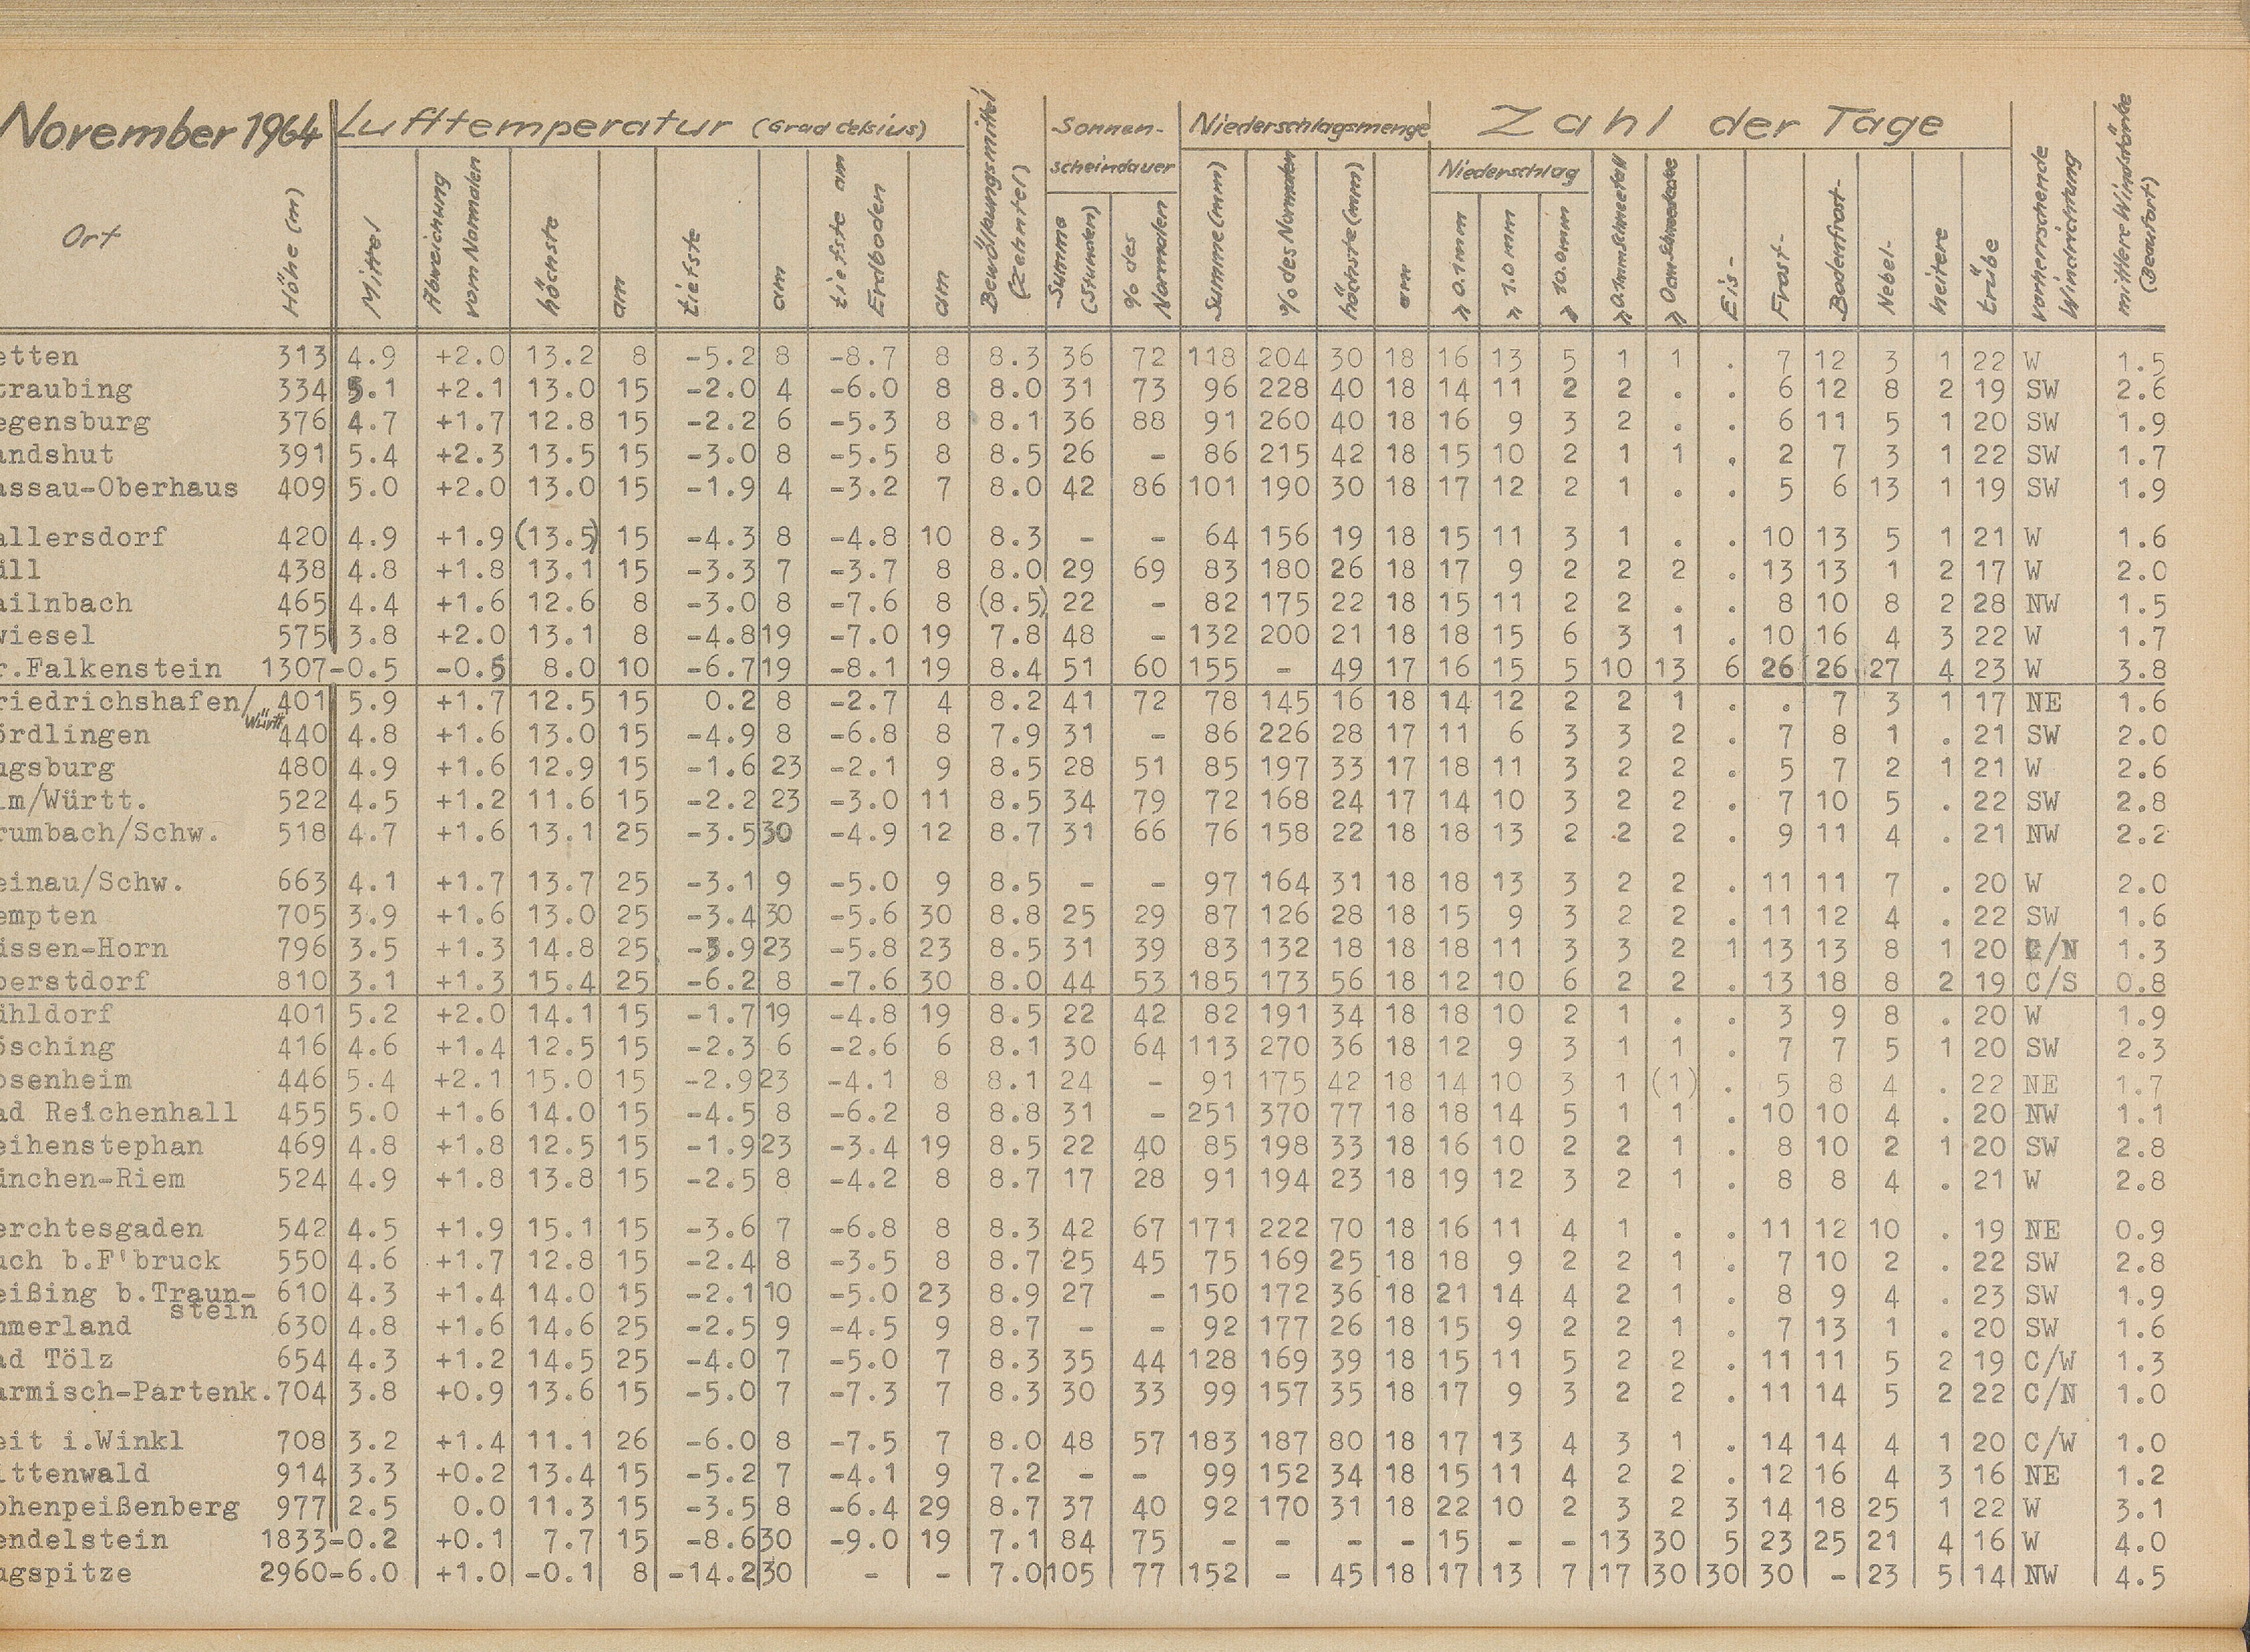 November 1964 Lufttemperatur (Grad Celsius) Bewölkungsmittel (Zehntel) Sonnen- scheindauer Niederschlagsmenge Zahl der Tage vorherrschende Windrichtung mittlere Windstärke (Beaufort)
Niederschlag
Ort Höhe (m) Mittel Abweichung vom Normalen höchste am tiefste am tiefste am Erdboden am Summe (Stunden) % des Normalen Summe (mm) % des Normalen höchste (mm) am ≥ 0.1mm ≥ 1.0mm ≥ 10.0mm ≥ 0.1mm Schneefall ≥ 0cm Schneedecke Eis- Frost- Bodenfrost- Nebel- heitere trübe
etten 313 4.9 +2.0 13.2 8 -5.2 8 -8.7 8 8.3 36 72 118 204 30 18 16 13 5 1 1 . 7 12 3 1 22 W 1.5
traubing 334 5.1 +2.1 13.0 15 -2.0 4 -6.0 8 8.0 31 73 96 228 40 18 14 11 2 2 . . 6 12 8 2 19 SW 2.6
egensburg 376 4.7 +1.7 12.8 15 -2.2 6 -5.3 8 8.1 36 88 91 260 40 18 16 9 3 2 . . 6 11 5 1 20 SW 1.9
andshut 391 5.4 +2.3 13.5 15 -3.0 8 -5.5 8 8.5 26 - 86 215 42 18 15 10 2 1 1 . 2 7 3 1 22 SW 1.7
assau-Oberhaus 409 5.0 +2.0 13.0 15 -1.9 4 -3.2 7 8.0 42 86 101 190 30 18 17 12 2 1 . . 5 6 13 1 19 SW 1.9
allersdorf 420 4.9 +1.9 (13.5) 15 -4.3 8 -4.8 10 8.3 - - 64 156 19 18 15 11 3 1 . . 10 13 5 1 21 W 1.6
üll 438 4.8 +1.8 13.1 15 -3.3 7 -3.7 8 8.0 29 69 83 180 26 18 17 9 2 2 2 . 13 13 1 2 17 W 2.0
ailnbach 465 4.4 +1.6 12.6 8 -3.0 8 -7.6 8 (8.5) 22 - 82 175 22 18 15 11 2 2 . . 8 10 8 2 28 NW 1.5
wiesel 575 3.8 +2.0 13.1 8 -4.8 19 -7.0 19 7.8 48 - 132 200 21 18 18 15 6 3 1 . 10 16 4 3 22 W 1.7
r.Falkenstein 1307 -0.5 -0.5 8.0 10 -6.7 19 -8.1 19 8.4 51 60 155 - 49 17 16 15 5 10 13 6 26 26 27 4 23 W 3.8
riedrichshafen/Württ. 401 5.9 +1.7 12.5 15 0.2 8 -2.7 4 8.2 41 72 78 145 16 18 14 12 2 2 1 . . 7 3 1 17 NE 1.6
ördlingen 440 4.8 +1.6 13.0 15 -4.9 8 -6.8 8 7.9 31 - 86 226 28 17 11 6 3 3 2 . 7 8 1 . 21 SW 2.0
ugsburg 480 4.9 +1.6 12.9 15 -1.6 23 -2.1 9 8.5 28 51 85 197 33 17 18 11 3 2 2 . 5 7 2 1 21 W 2.6
lm/Württ. 522 4.5 +1.2 11.6 15 -2.2 23 -3.0 11 8.5 34 79 72 168 24 17 14 10 3 2 2 . 7 10 5 . 22 SW 2.8
rumbach/Schw. 518 4.7 +1.6 13.1 25 -3.5 30 -4.9 12 8.7 31 66 76 158 22 18 18 13 2 2 2 . 9 11 4 . 21 NW 2.2
einau/Schw. 663 4.1 +1.7 13.7 25 -3.1 9 -5.0 9 8.5 - - 97 164 31 18 18 13 3 2 2 . 11 11 7 . 20 W 2.0
empten 705 3.9 +1.6 13.0 25 -3.4 30 -5.6 30 8.8 25 29 87 126 28 18 15 9 3 2 2 . 11 12 4 . 22 SW 1.6
üssen-Horn 796 3.5 +1.3 14.8 25 -3.9 23 -5.8 23 8.5 31 39 83 132 18 18 18 11 3 3 2 1 13 13 8 1 20 C/N 1.3
berstdorf 810 3.1 +1.3 15.4 25 -6.2 8 -7.6 30 8.0 44 53 185 173 56 18 12 10 6 2 2 . 13 18 8 2 19 C/S 0.8
ühldorf 401 5.2 +2.0 14.1 15 -1.7 19 -4.8 19 8.5 22 42 82 191 34 18 18 10 2 1 . . 3 9 8 . 20 W 1.9
ösching 416 4.6 +1.4 12.5 15 -2.3 6 -2.6 6 8.1 30 64 113 270 36 18 12 9 3 1 1 . 7 7 5 1 20 SW 2.3
osenheim 446 5.4 +2.1 15.0 15 -2.9 23 -4.1 8 8.1 24 - 91 175 42 18 14 10 3 1 (1) . 5 8 4 . 22 NE 1.7
ad Reichenhall 455 5.0 +1.6 14.0 15 -4.5 8 -6.2 8 8.8 31 - 251 370 77 18 18 14 5 1 1 . 10 10 4 . 20 NW 1.1
eihenstephan 469 4.8 +1.8 12.5 15 -1.9 23 -3.4 19 8.5 22 40 85 198 33 18 16 10 2 2 1 . 8 10 2 1 20 SW 2.8
ünchen-Riem 524 4.9 +1.8 13.8 15 -2.5 8 -4.2 8 8.7 17 28 91 194 23 18 19 12 3 2 1 . 8 8 4 . 21 W 2.8
erchtesgaden 542 4.5 +1.9 15.1 15 -3.6 7 -6.8 8 8.3 42 67 171 222 70 18 16 11 4 1 . . 11 12 10 . 19 NE 0.9
uch b.F'bruck 550 4.6 +1.7 12.8 15 -2.4 8 -3.5 8 8.7 25 45 75 169 25 18 18 9 2 2 1 . 7 10 2 . 22 SW 2.8
eißing b.Traun- 610 4.3 +1.4 14.0 15 -2.1 10 -5.0 23 8.9 27 - 150 172 36 18 21 14 4 2 1 . 8 9 4 . 23 SW 1.9
stein
mmerland 630 4.8 +1.6 14.6 25 -2.5 9 -4.5 9 8.7 - - 92 177 26 18 15 9 2 2 1 . 7 13 1 . 20 SW 1.6
ad Tölz 654 4.3 +1.2 14.5 25 -4.0 7 -5.0 7 8.3 35 44 128 169 39 18 15 11 5 2 2 . 11 11 5 2 19 C/W 1.3
armisch-Partenk. 704 3.8 +0.9 13.6 15 -5.0 7 -7.3 7 8.3 30 33 99 157 35 18 17 9 3 2 2 . 11 14 5 2 22 C/N 1.0
eit i.Winkl 708 3.2 +1.4 11.1 26 -6.0 8 -7.5 7 8.0 48 57 183 187 80 18 17 13 4 3 1 . 14 14 4 1 20 C/W 1.0
ittenwald 914 3.3 +0.2 13.4 15 -5.2 7 -4.1 9 7.2 - - 99 152 34 18 15 11 4 2 2 . 12 16 4 3 16 NE 1.2
ohenpeißenberg 977 2.5 0.0 11.3 15 -3.5 8 -6.4 29 8.7 37 40 92 170 31 18 22 10 2 3 2 3 14 18 25 1 22 W 3.1
endelstein 1833 -0.2 +0.1 7.7 15 -8.6 30 -9.0 19 7.1 84 75 - - - - 15 - - 13 30 5 23 25 21 4 16 W 4.0
ugspitze 2960 -6.0 +1.0 -0.1 8 -14.2 30 - - 7.0 105 77 152 - 45 18 17 13 7 17 30 30 30 - 23 5 14 NW 4.5